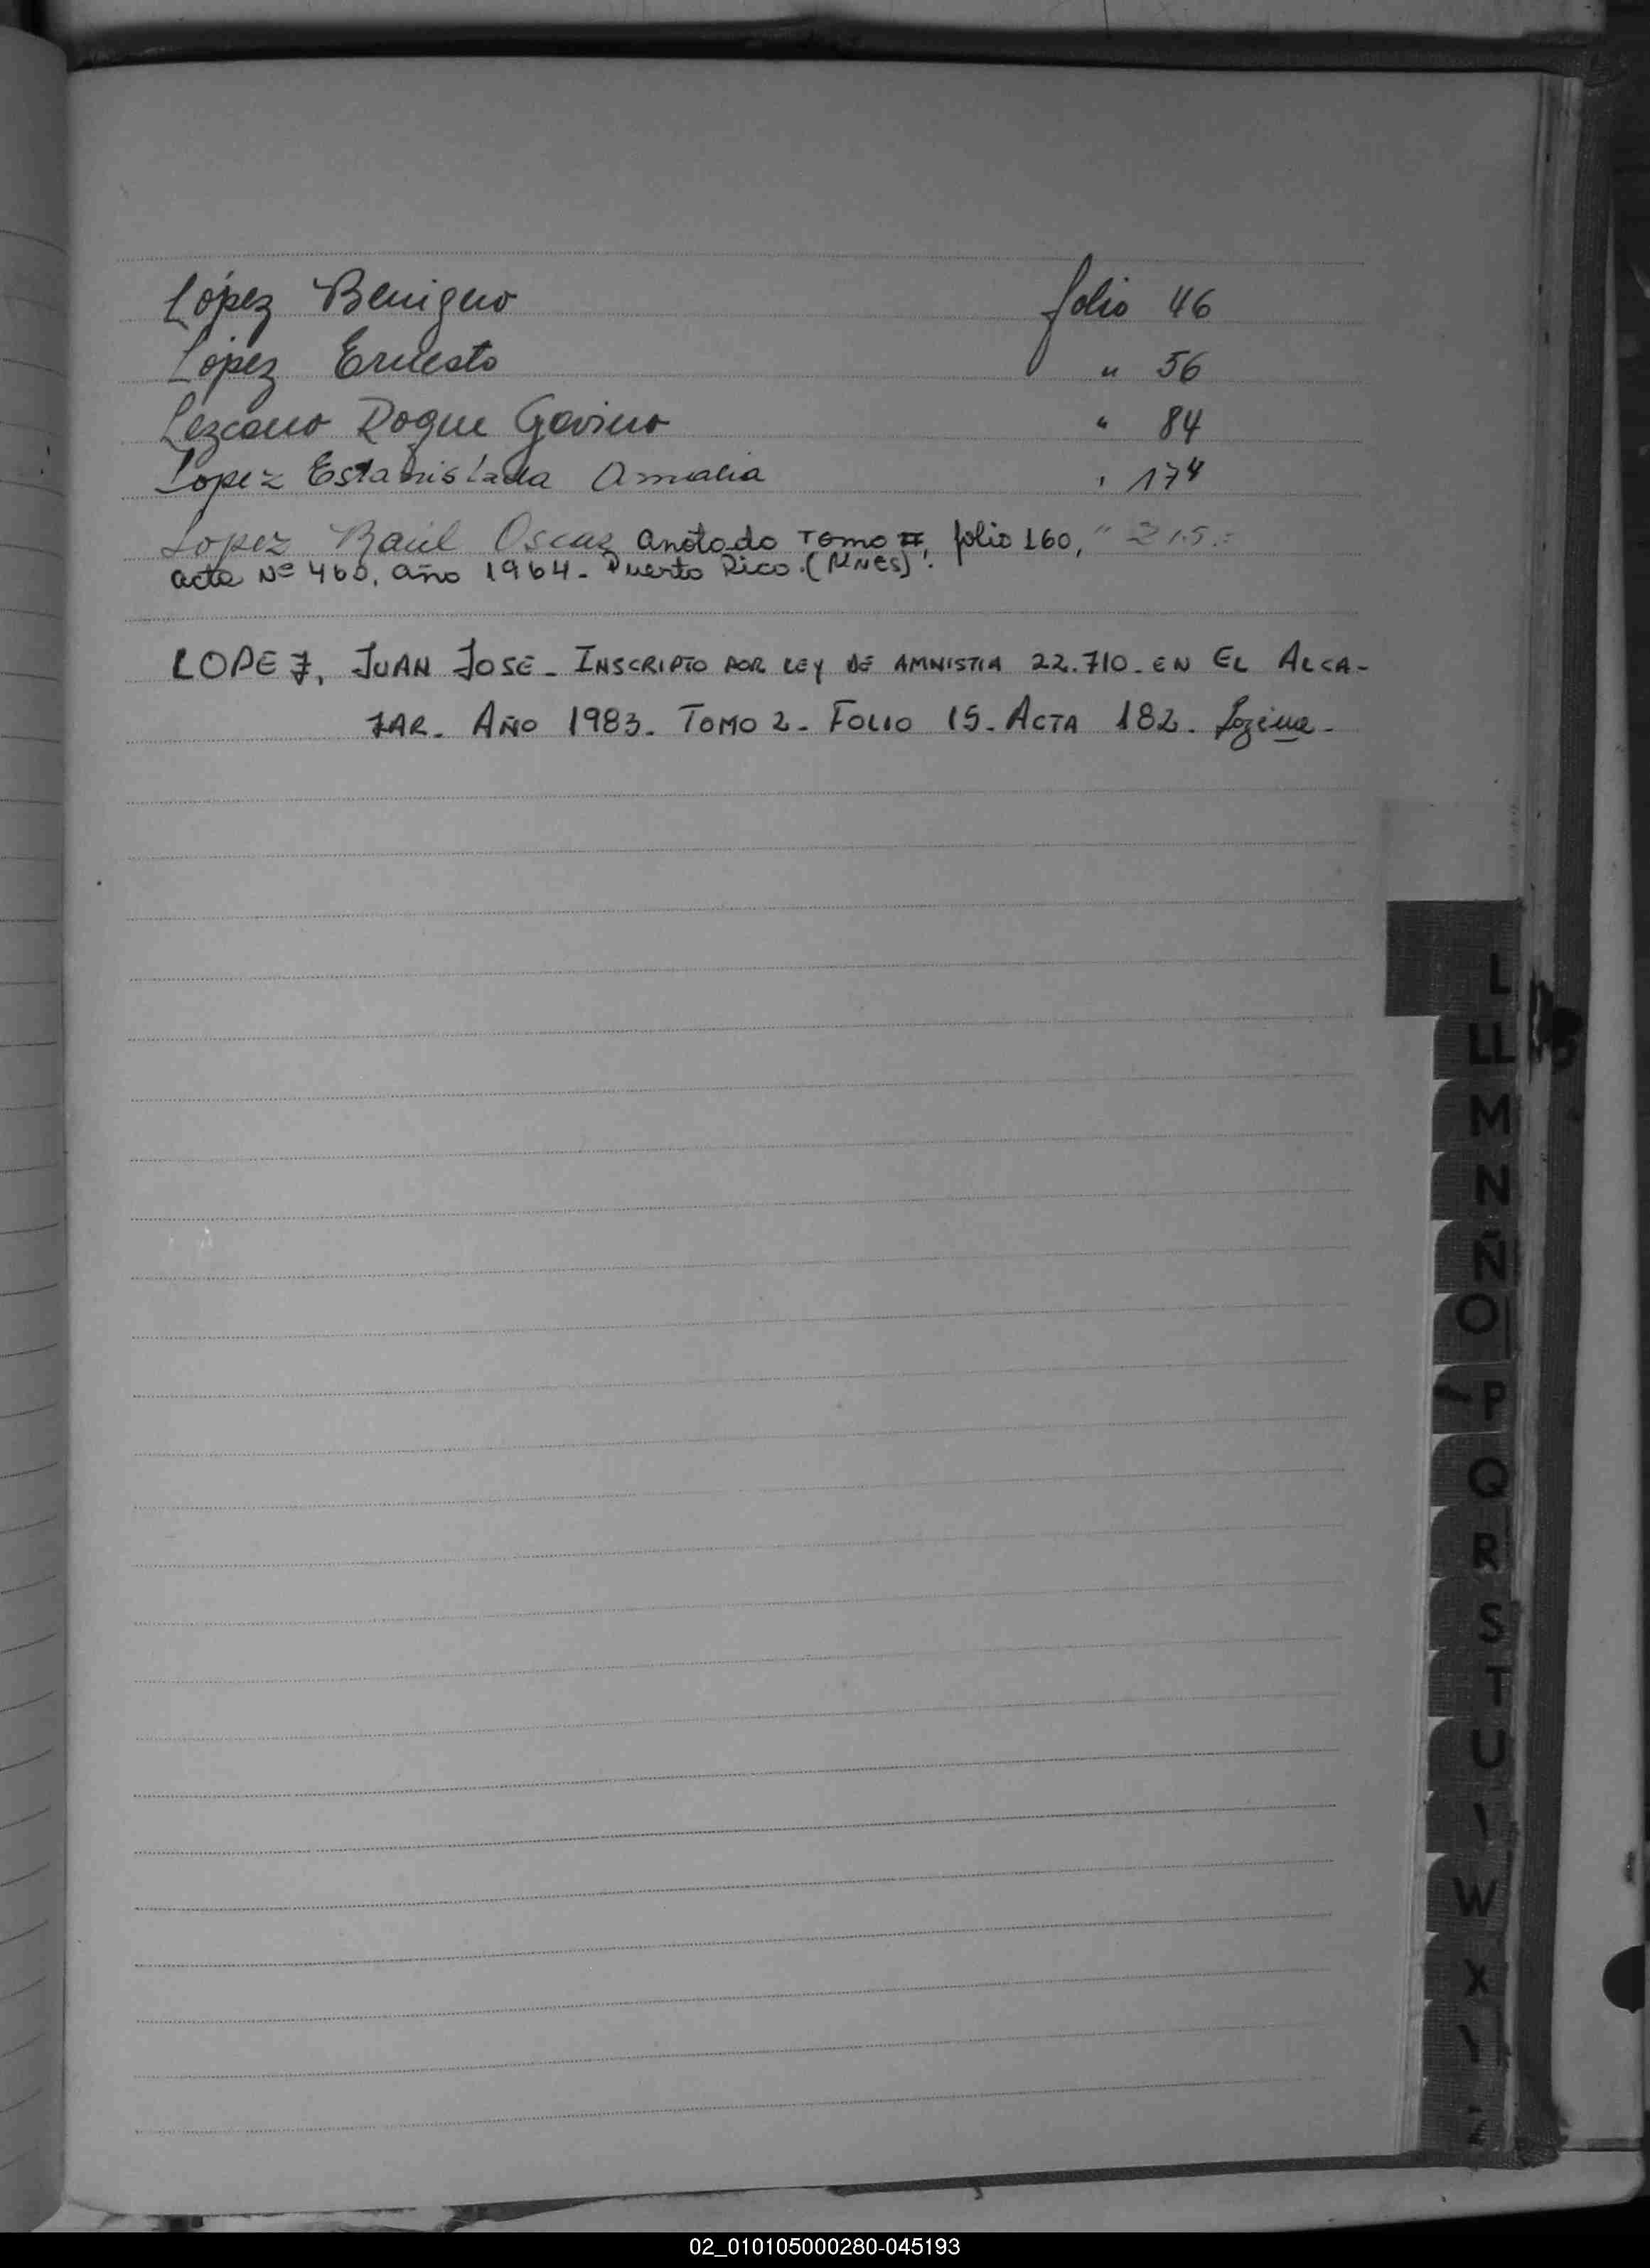 López Benigno folio 46
López Ernesto " 56
Lezcano Roque Gavino " 84
Lopez Estanislada Amalia " 174
Lopez Raúl Oscar anotado Tomo II, folio 160, " 215.=
acta Nº 460, año 1964. Puerto Rico. (Mnes).
LOPEZ, JUAN JOSÉ. INSCRIPTO POR LEY DE AMNISTIA 22.710. EN EL ALCA-
ZAR. AÑO 1983. TOMO 2. FOLIO 15. ACTA 182.
L
LL
M
N
Ñ
O
P
Q
R
S
T
U
W
X
Y
Z
02_010105000280-045193